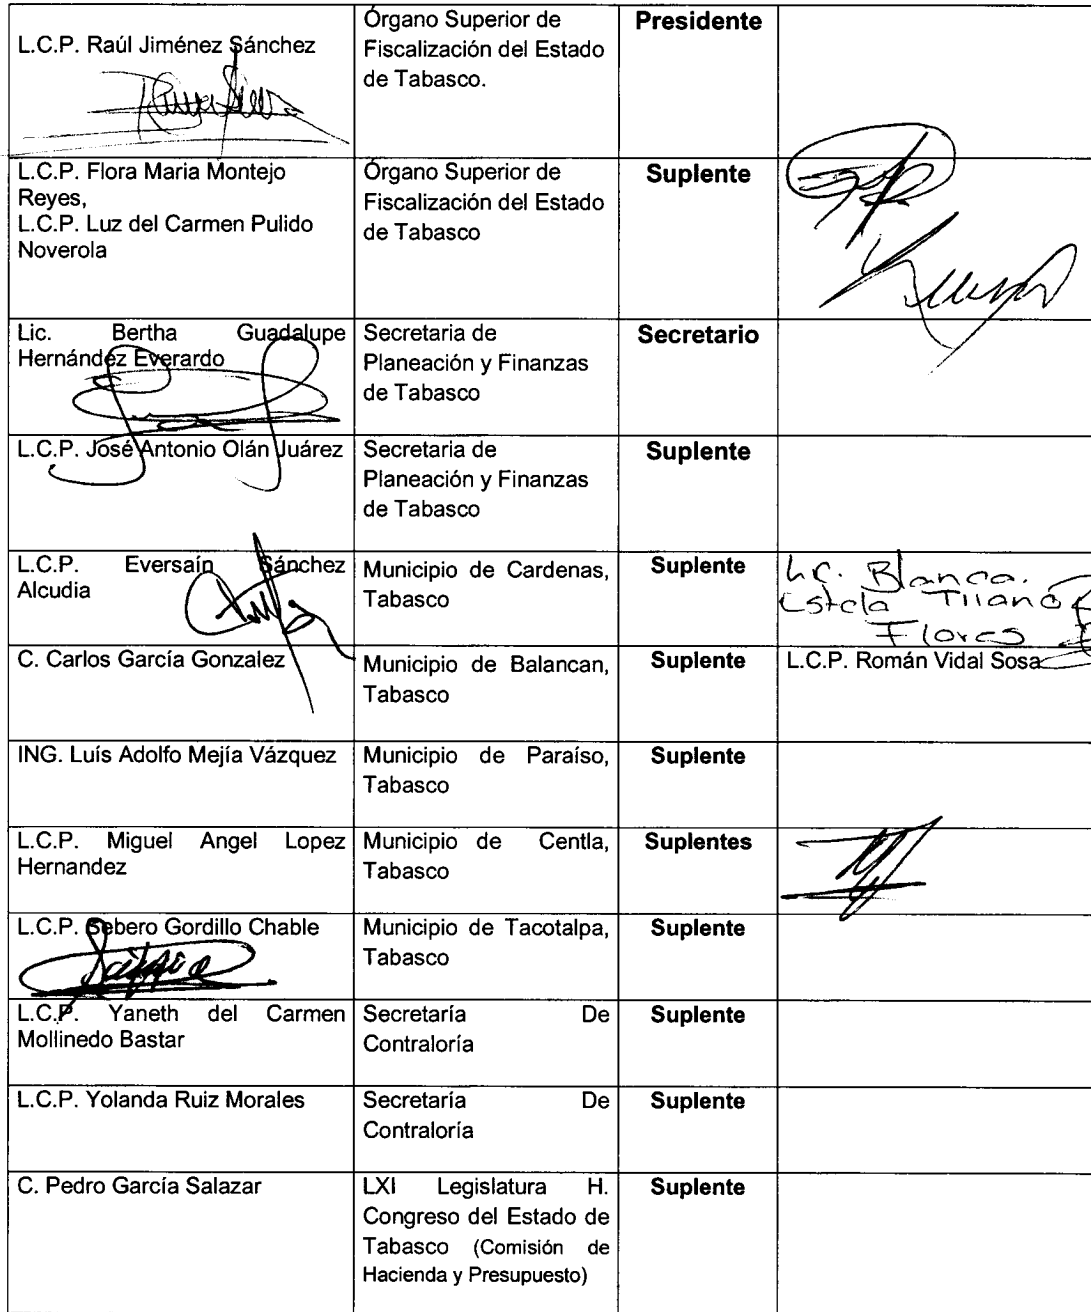 L.C.P. Raúl Jiménez Sánchez
Órgano Superior de
Fiscalización del Estado
de Tabasco.
Presidente
L.C.P. Flora Maria Montejo
Reyes,
L.C.P. Luz del Carmen Pulido
Noverola
Órgano Superior de
Fiscalización del Estado
de Tabasco
Suplente
Lic. Bertha Guadalupe
Hernández Everardo
Secretaria de
Planeación y Finanzas
de Tabasco
Secretario
L.C.P. José Antonio Olán Juárez
Secretaria de
Planeación y Finanzas
de Tabasco
Suplente
L.C.P. Eversaín Sánchez
Alcudia
Municipio de Cardenas,
Tabasco
Suplente
Blanca.
Estela
Flores
C. Carlos García Gonzalez
Municipio de Balancan,
Tabasco
Suplente
L.C.P. Román Vidal Sosa
ING. Luís Adolfo Mejía Vázquez
Municipio de Paraíso,
Tabasco
Suplente
L.C.P. Miguel Angel Lopez
Hernandez
Municipio de Centla,
Tabasco
Suplentes
L.C.P. Sebero Gordillo Chable
Municipio de Tacotalpa,
Tabasco
Suplente
L.C.P. Yaneth del Carmen
Mollinedo Bastar
Secretaría De
Contraloría
Suplente
L.C.P. Yolanda Ruiz Morales
Secretaría De
Contraloría
Suplente
C. Pedro García Salazar
LXI Legislatura H.
Congreso del Estado de
Tabasco (Comisión de
Hacienda y Presupuesto)
Suplente